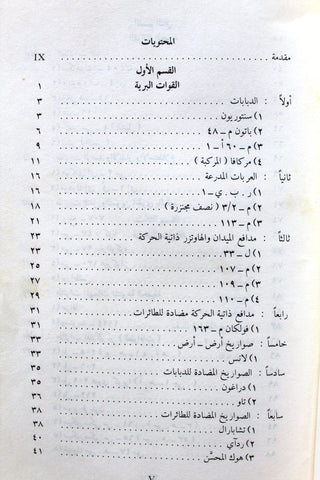 المحتويات
مقدمة ........ IX
القسم الأول
القوات البرية ١
أولاً : الدبابات ........ ٣
١) سنتوريون ........ ٣
٢) باتون م – ٤٨ ........ ٦
٣) م – ٦٠ أ – ١ ........ ٩
٤) مركافا ( المركبة ) ........ ١١
ثانياً : العربات المدرعة ........ ١٦
١) ر . ب . ي – ١ ........ ١٦
٢) م – ٣/٢ ( نصف مجنزرة ) ........ ١٨
٣) م – ١١٣ ........ ٢١
ثالثاً : مدافع الميدان والهاوتزر ذاتية الحركة ........ ٢٣
١) ل – ٣٣ ........ ٢٣
٢) م – ١٠٧ ........ ٢٥
٣) م – ١٠٩ ........ ٢٧
٤) م – ١١٠ ........ ٢٩
رابعاً : مدافع ذاتية الحركة مضادة للطائرات ........ ٣١
١) فولكان م – ١٦٣ ........ ٣١
خامساً : صواريخ أرض – أرض ........ ٣٣
١) لانس ........ ٣٣
سادساً : الصواريخ المضادة للدبابات ........ ٣٥
١) دراغون ........ ٣٥
٢) تاو ........ ٣٦
سابعاً : الصواريخ المضادة للطائرات ........ ٣٨
١) تشابارال ........ ٣٨
٢) ردآي ........ ٤٠
٣) هوك المحسّن ........ ٤١
V